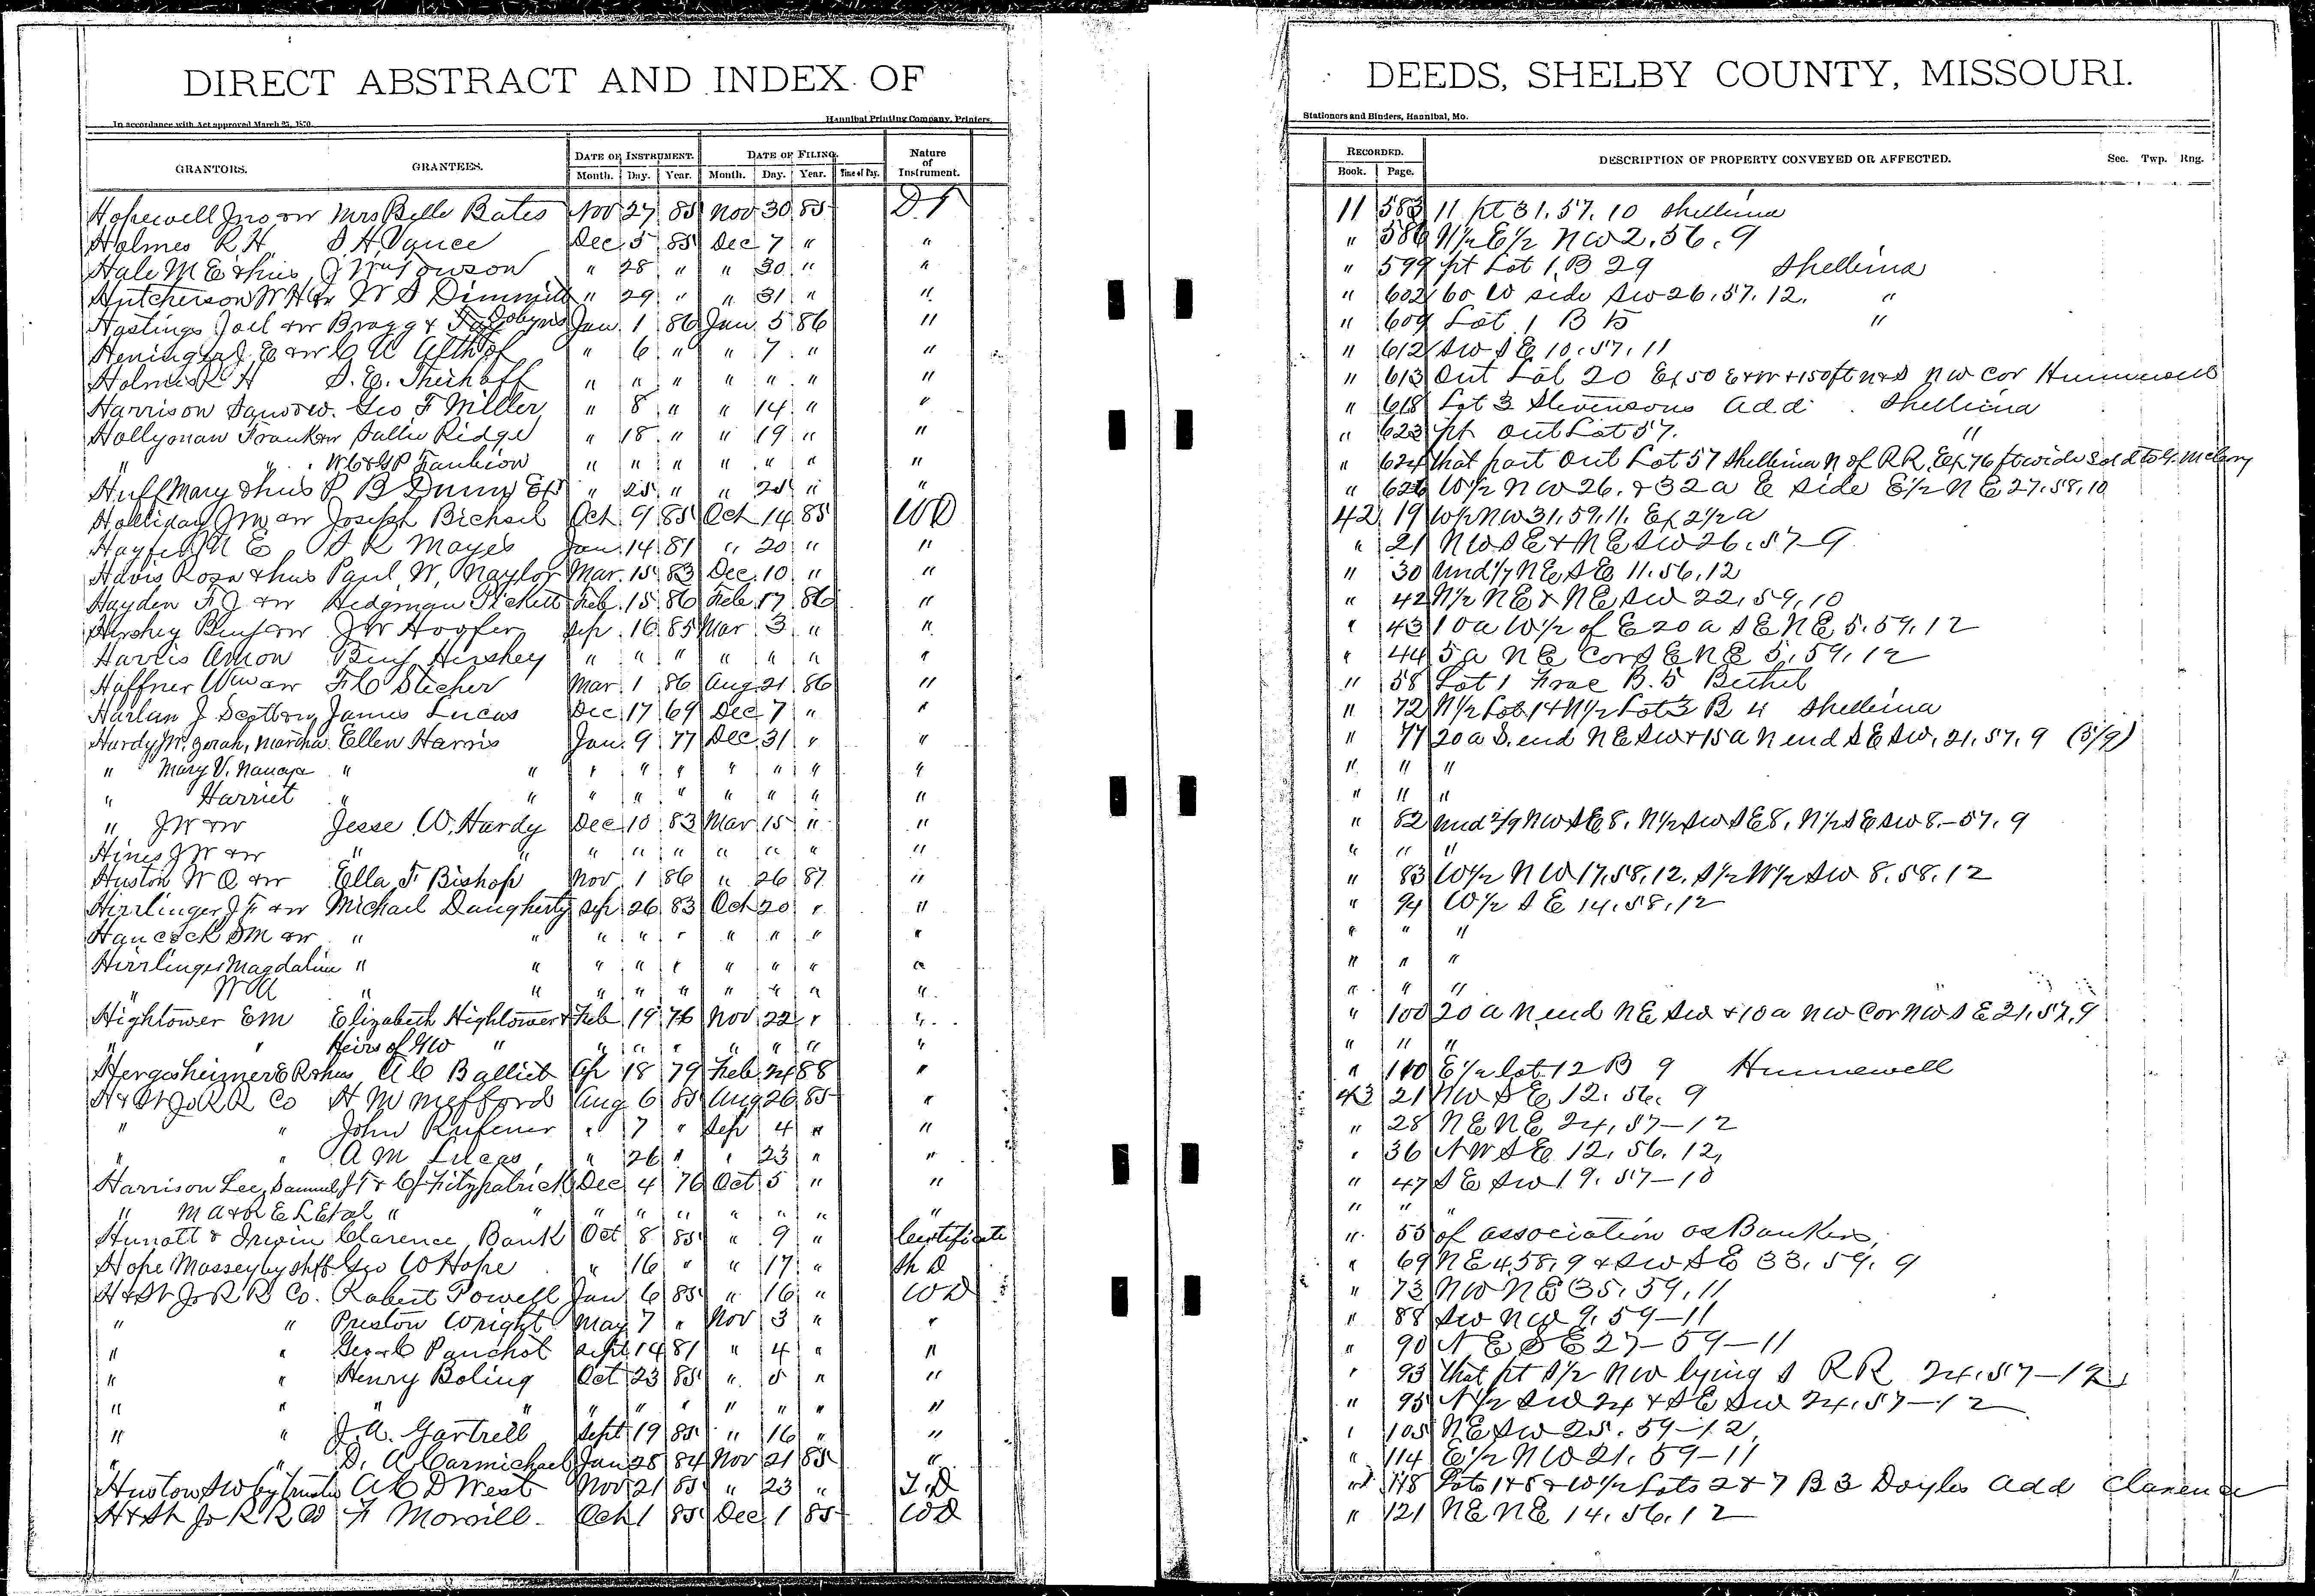 DIRECT ABSTRACT AND INDEX OF DEEDS, SHELBY COUNTY, MISSOURI.
In accordance with Act approved March 25, 1870. Hannibal Printing Company, Printers, Stationers and Binders, Hannibal, Mo.
GRANTORS. GRANTEES. DATE OF INSTRUMENT. DATE OF FILING. Nature of Instrument. RECORDED. DESCRIPTION OF PROPERTY CONVEYED OR AFFECTED. Sec. Twp. Rng.
Month. Day. Year. Month. Day. Year. Time of Day. Book. Page.
Hopewell Jno & w Mrs Belle Bates Nov 27 85 Nov 30 85 DT 11 583 11 pt 31.57.10 Shelbina
Holmes R H S H Vance Dec 5 85 Dec 7 " " " 586 N1/2 E1/2 NW 2.56.9
Hale M E & hus J Wm Towson " 28 " " 30 " " " 599 pt Lot 1 B 29 Shelbina
Hutcherson W H & w W S Dimmitt " 29 " " 31 " " " 602 60 W side SW 26.57.12. "
Hastings Joel & w Bragg & Dobyns Jan 1 86 Jan 5 86 " " 609 Lot 1 B 15 "
Heninger J E & w C A Althof " 6 " " 7 " " " 612 SW SE 10.57.11
Holmes R H S. E. Thiehoff " " " " " " " " 613 Out Lot 20 Ex 50 E & W & 150 ft N & S NW Cor Hunnewell
Harrison Saml & w Geo F Miller " 8 " " 14 " " " 618 Lot 3 Stevensons Add Shelbina
Hollyman Frank & w Sallie Ridge " 18 " " 19 " " " 623 pt Out Lot 57. "
" " W C & G P Faubion " " " " " " " " 624 that part Out Lot 57 Shelbina N of RR, Ex 76 ft wide sold to
Huff Mary & hus P B Dunn Exr " 25 " " 25 " " " 626 W1/2 NW 26. & 32 a E side E1/2 NE 27.58.10
Holliday J M & w Joseph Bichsel Oct 9 85 Oct 14 85 WD 42 19 W1/2 NW 31.59.11. Ex 2 1/2 a
N E S K Mayes Jan 14 81 " 20 " " " 21 NW SE & NE SW 26.57-9
Havis Rosa & hus Paul W. Naylor Mar 15 83 Dec 10 " " " 30 Und 1/7 NE SE 11.56.12
Hayden F J & w Hedgman Pickett Feb 15 86 Feb 17 86 " " 42 N1/2 NE & NE SW 22.59.10
Hershey Benj & w J W Hoofer Sep 16 85 Mar 3 " " " 43 10 a W1/2 of E 20 a SE NE 5.59.12
Harris Amon Benj Hershey " " " " " " " " 44 5 a NE Cor SE NE 5.59.12
Haffner Wm & w F C Stecher Mar 1 86 Aug 21 86 " " 58 Lot 1 Frac B. 5 Bethel
Harlan J Scott James Lucas Dec 17 69 Dec 7 " " " 72 N1/2 Lot 1 & N1/2 Lot 3 B 4 Shelbina
Hardy Martha Ellen Harris Jan 9 77 Dec 31 " " " 77 20 a S. end NE SW & 15 a N end SE SW. 21.57.9 (5/9)
" Mary V. Nancy " " " " " " " " " " " "
" Harriet " " " " " " " " " " " "
" J W & w Jesse W. Hardy Dec 10 83 Mar 15 " " " 82 Und 2/9 NW SE 8. N1/2 SW SE 8. N1/2 SE SW 8.-57.9
Hines J W & w " " " " " " " " " " "
Huston W O & w Ella F Bishop Nov 1 86 " 26 87 " " 83 W1/2 NW 17.58.12. S1/2 W1/2 SW 8.58.12
Hirrlinger J F & w Michael Daugherty Sep 26 83 Oct 20 " " " 94 W1/2 SE 14.58.12
Hancock S M & w " " " " " " " " " " " "
Hirrlinger Magdaline " " " " " " " " " " " "
" W A " " " " " " " " " " " "
Hightower E M Elizabeth Hightower & Feb 19 76 Nov 22 " " " 100 20 a N end NE SW & 10 a NW Cor NW SE 21.57.9
" " Heirs of G W " " " " " " " " " " "
Hergesheimer E R & hus A C Balliet Ap 18 79 Feb 24 88 " " 110 E1/2 Lot 12 B 9 Hunnewell
H & St Jo R R Co H M Mefford Aug 6 85 Aug 26 85 " 43 21 NW SE 12.56.9
" " John Rufener " 7 " Sep 4 " " " 28 NE NE 24.57-12
" " A M Lucas " 26 " " 23 " " " 36 NW SE 12.56.12.
Harrison Lee, Samuel J T & C J Fitzpatrick Dec 4 76 Oct 5 " " " 47 SE SW 19.57-10
" M A & R E L Et al " " " " " " " " " " " "
Hunott & Irwin Clarence Bank Oct 8 85 " 9 " Certificate " 55 of association as Bankers,
Hope Massey by Shff Geo W Hope " 16 " " 17 " Sh D " 69 NE 4.58.9 & SW SE 33.59.9
H & St Jo R R Co. Robert Powell Jan 6 85 " 16 " WD " 73 NW NE 35.59.11
" " Preston Wright May 7 " Nov 3 " " " 88 SW NW 9.59-11
" " Geo C Panchot Sept 14 81 " 4 " " " 90 NE SE 27-59-11
" " Henry Boling Oct 23 85 " 5 " " " 93 that pt S1/2 NW lying S RR 24.57-12
" " " " " " " " " " " 95 N1/2 SW 24 & SE SW 24.57-12
" " J. A. Gartrell Sept 19 85 " 16 " " " 105 NE SW 25.59-12
" " D. A Carmichael Jan 28 84 Nov 21 85 " " 114 E1/2 NW 21.59-11
Huston S W by trustee A C D West Nov 21 85 " 23 " T.D " 118 Lots 1 & 8 & W1/2 Lots 2 & 7 B 3 Doyles Add Clarence
H & St Jo R R Co F Morrill Oct 1 85 Dec 1 85 WD " 121 NE NE 14.56.12